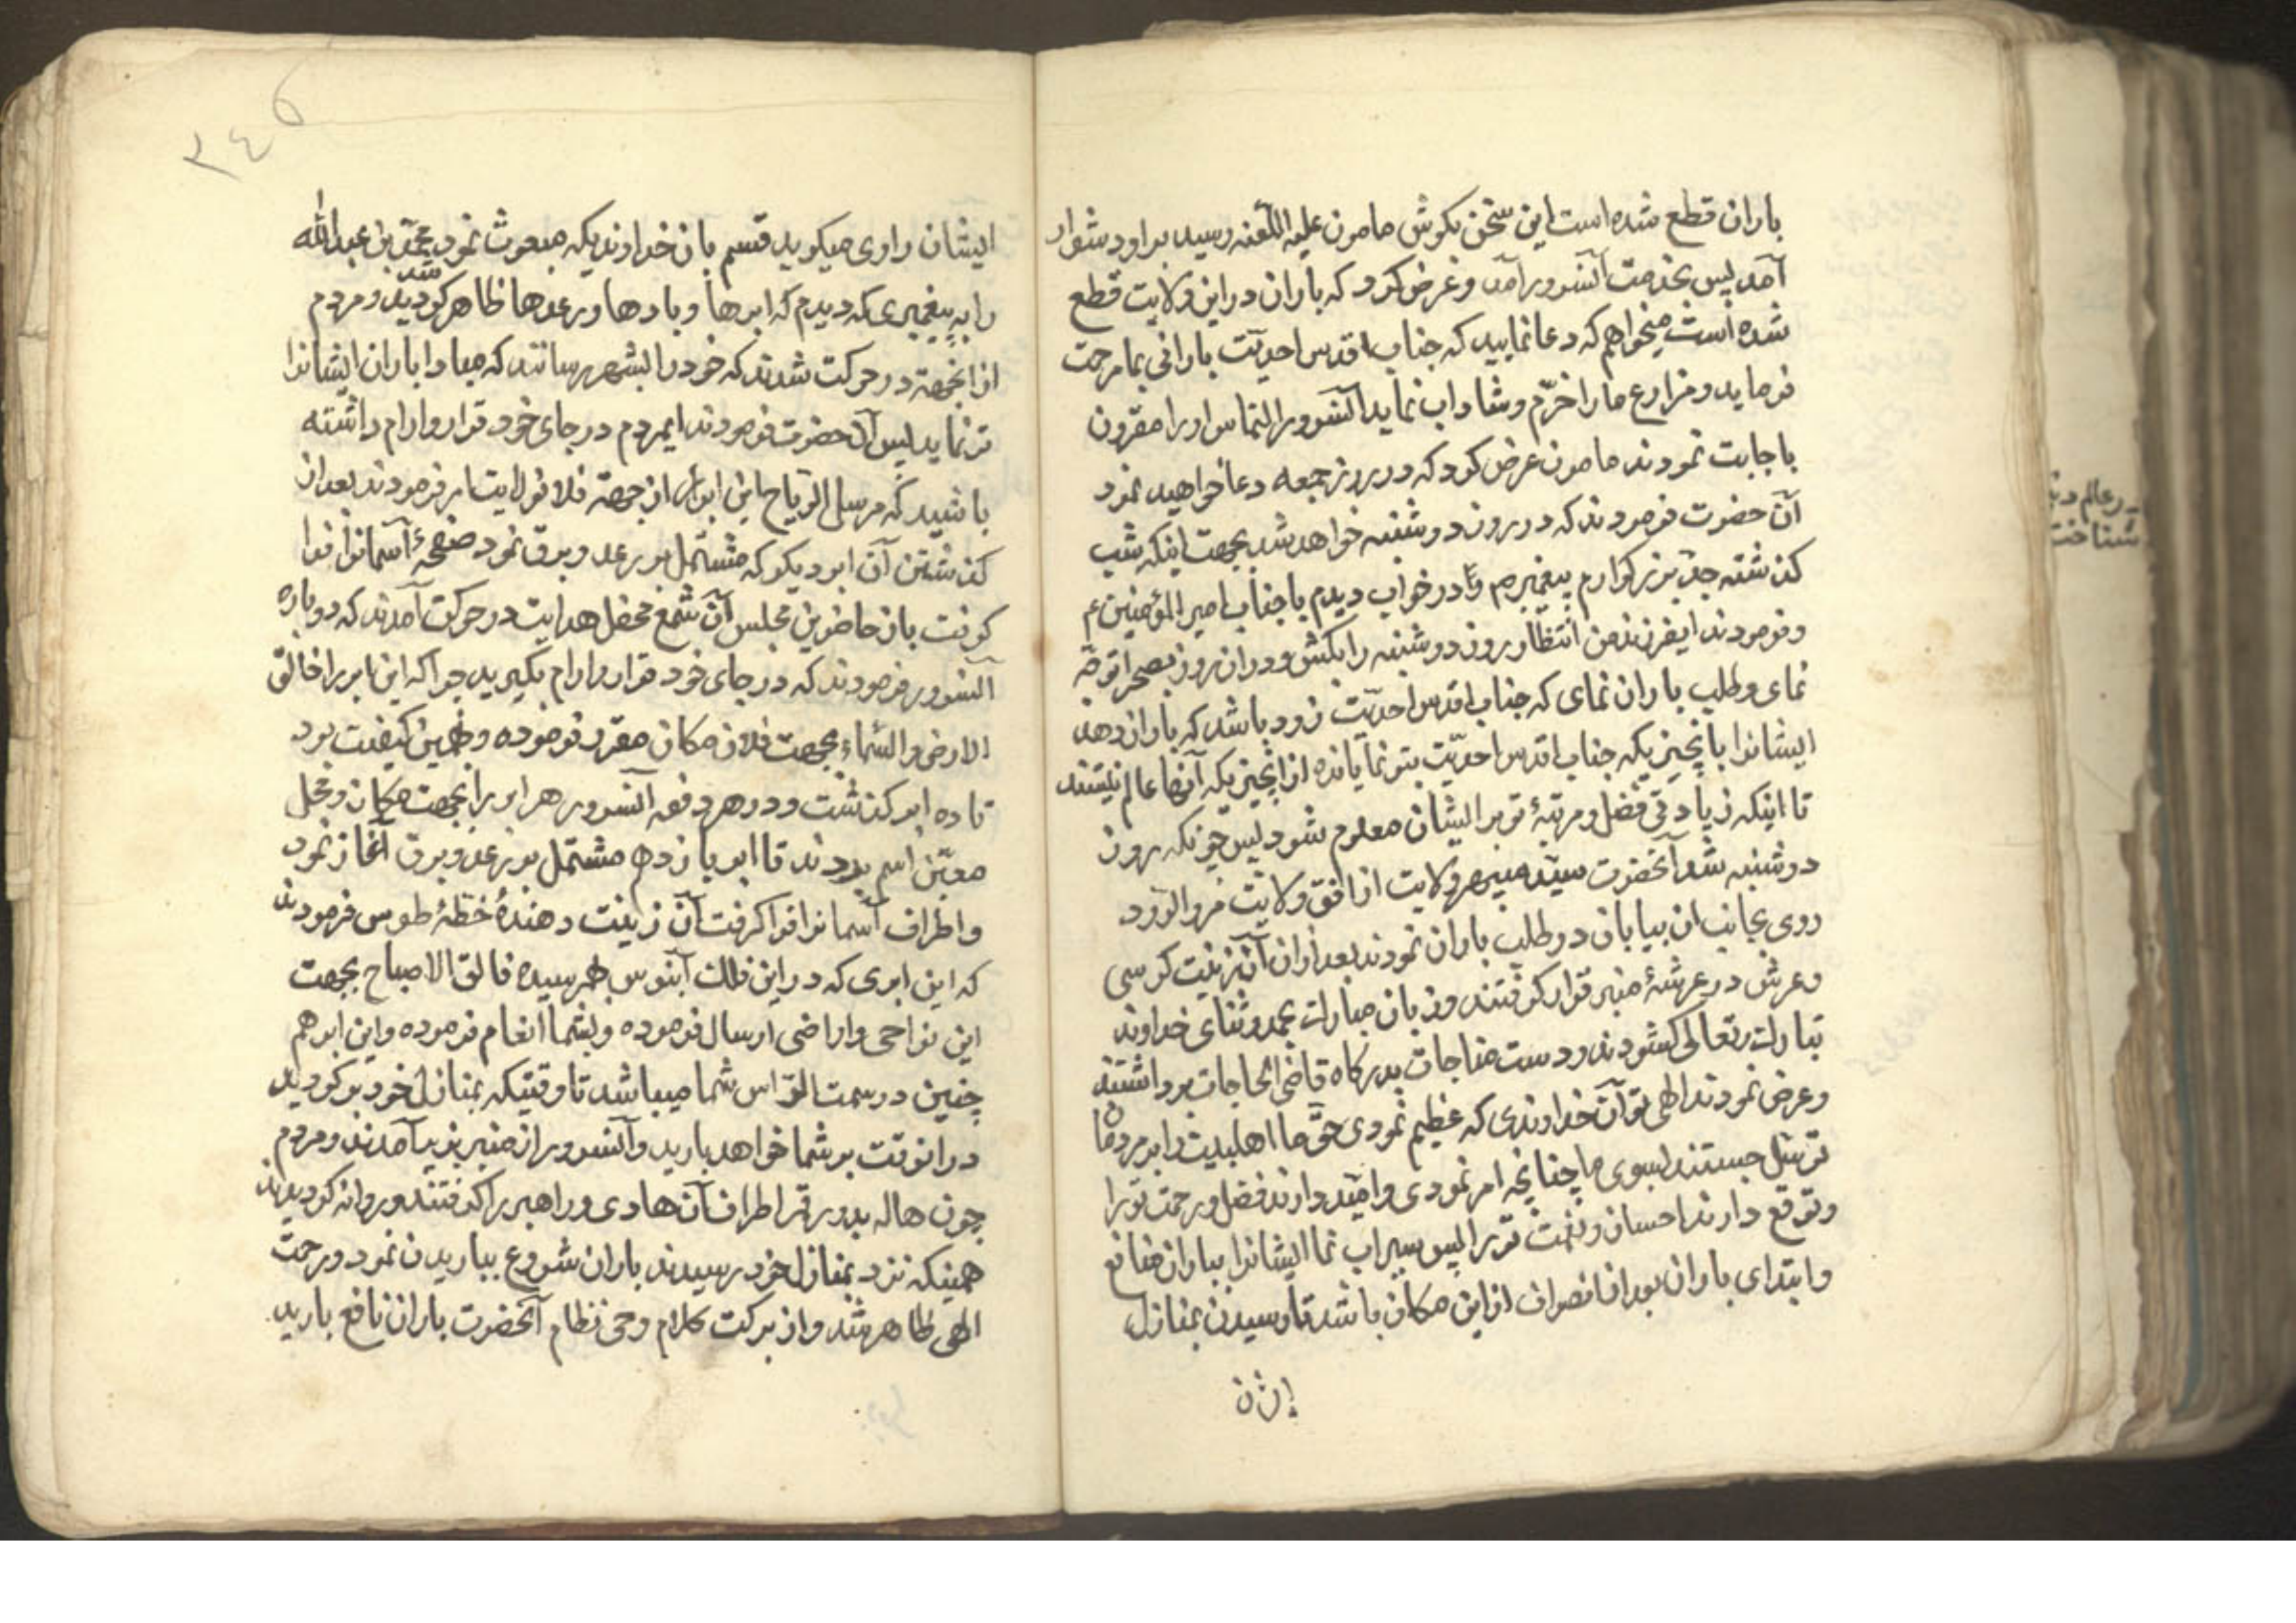 باران قطع شده است این سخن بکوش مامون علیه اللّعنه رسید بر او دشوار
آمد پس بخدمت آنسرور آمد و عرض کرد که باران در این ولایت قطع
شده است میخواهم که دعا نمایید که جناب اقدس احدیّت بارانی بما مرحمت
فرماید و مزارع ما را خرّم و شاداب نماید آنسرور التماس او را مقرون
باجابت نمودند مامون عرض کرد که در روز جمعه دعا خواهید نمود
آن حضرت فرمودند که در روز دوشنبه خواهد شد بجهت اینکه شب
کذشته جدّ بزرکوارم پیغمبرم را در خواب دیدم با جناب امیر المؤمنین ع
و فرمودند ایفرزند من انتظار روز دوشنبه را بکش و در ان روز بصحرا توجّه
نمای و طلب باران نمای که جناب اقدس احدیّت زود باشد که باران دهد
ایشانرا بآنچیزیکه جناب اقدس احدیّت بتو نمایانده از آنچیزیکه آنها عالم نیستند
تا اینکه زیادتی فضل و مرتبۀ تو بر ایشان معلوم شود پس چونکه روز
دوشنبه شد آنحضرت سپهر ولایت از افق ولایت مرو الرّود
روی بجانب ان بیابان در طلب باران نمودند بعد از ان آن زینت کرسی
و عرش در عرشۀ منبر قرار کرفتند و زبان مبارک بحمد و ثنای خداوند
تبارک و تعالی کشودند و دست مناجات بدرکاه قاضی الحاجات برداشتند
و عرض نمودند الهی تو آن خداوندی که عظیم نمودی حقّ ما اهلبیت را بر مردمان
توسّل جستند بسوی ما چنانچه امر نمودی و امّید دارند فضل و رحمت تو را
و توقّع دارند احسان و نعمت تو را پس سیراب نما ایشانرا بباران منافع
و ابتدای باران بعد از انصراف از این مکان باشد تا رسیدن بمنازل
ایشان
٣٤٥
ایشان راوی میکوید قسم بان خداوندیکه مبعوث نمود محمّد بن عبد الله
را به پیغمبری که دیدم که ابرها و بادها و رعدها ظاهر کردید و مردم
شد
از انجهة در حرکت شدند که خود را بشهر رسانند که مبادا باران ایشانرا
تر نماید پس آن حضرت فرمودند ایمردم در جای خود قرار و ارام داشته
باشید که مرسل الرّیاح این ابر را از جهة فلان ولایت امر فرمودند بعد از
کذشتن آن ابر دیکر که مشتمل بر رعد و برق نمود صفحۀ آسمانرا فرا
کرفت باز حاضرین مجلس آن شمع محفل هدایت در حرکت آمدند که دوباره
آنسرور فرمودند که در جای خود قرار و ارام بکیرید چرا که این ابر را خالق
الارض و السّماء بجهت فلان مکان مقرّر فرموده و بهمین کیفیّت بود
تا ده ابر کذشت و در هر دفعه آنسرور هر ابر را بجهت مکان و محل
معیّن اسم بردند تا ابر یازدهم مشتمل بر رعد و برق آغاز نمود
و اطراف آسمانرا فرا کرفت آن زینت دهندۀ خطّۀ طوس فرمودند
که این ابری که در این فلک آبنوس بهم رسیده فالق الاصباح بجهت
این نواحی و اراضی ارسال فرموده و بشما انعام فرموده و این ابر هم
چنین در سمت الرّاس شما میباشد تا وقتیکه بمنازل خود بر کردید
در انوقت بر شما خواهد بارید و آنسرور از منبر بزیر آمدند و مردم
چون هاله بدور قمر اطراف آن هادی و راهبر را کرفتند و روانه کردیدند
همینکه نزد بمنازل خود رسیدند باران شروع بباریدن نمود و رحمت
الهی ظاهر شد و از برکت کلام وحی نظام آنحضرت باران نافع بارید